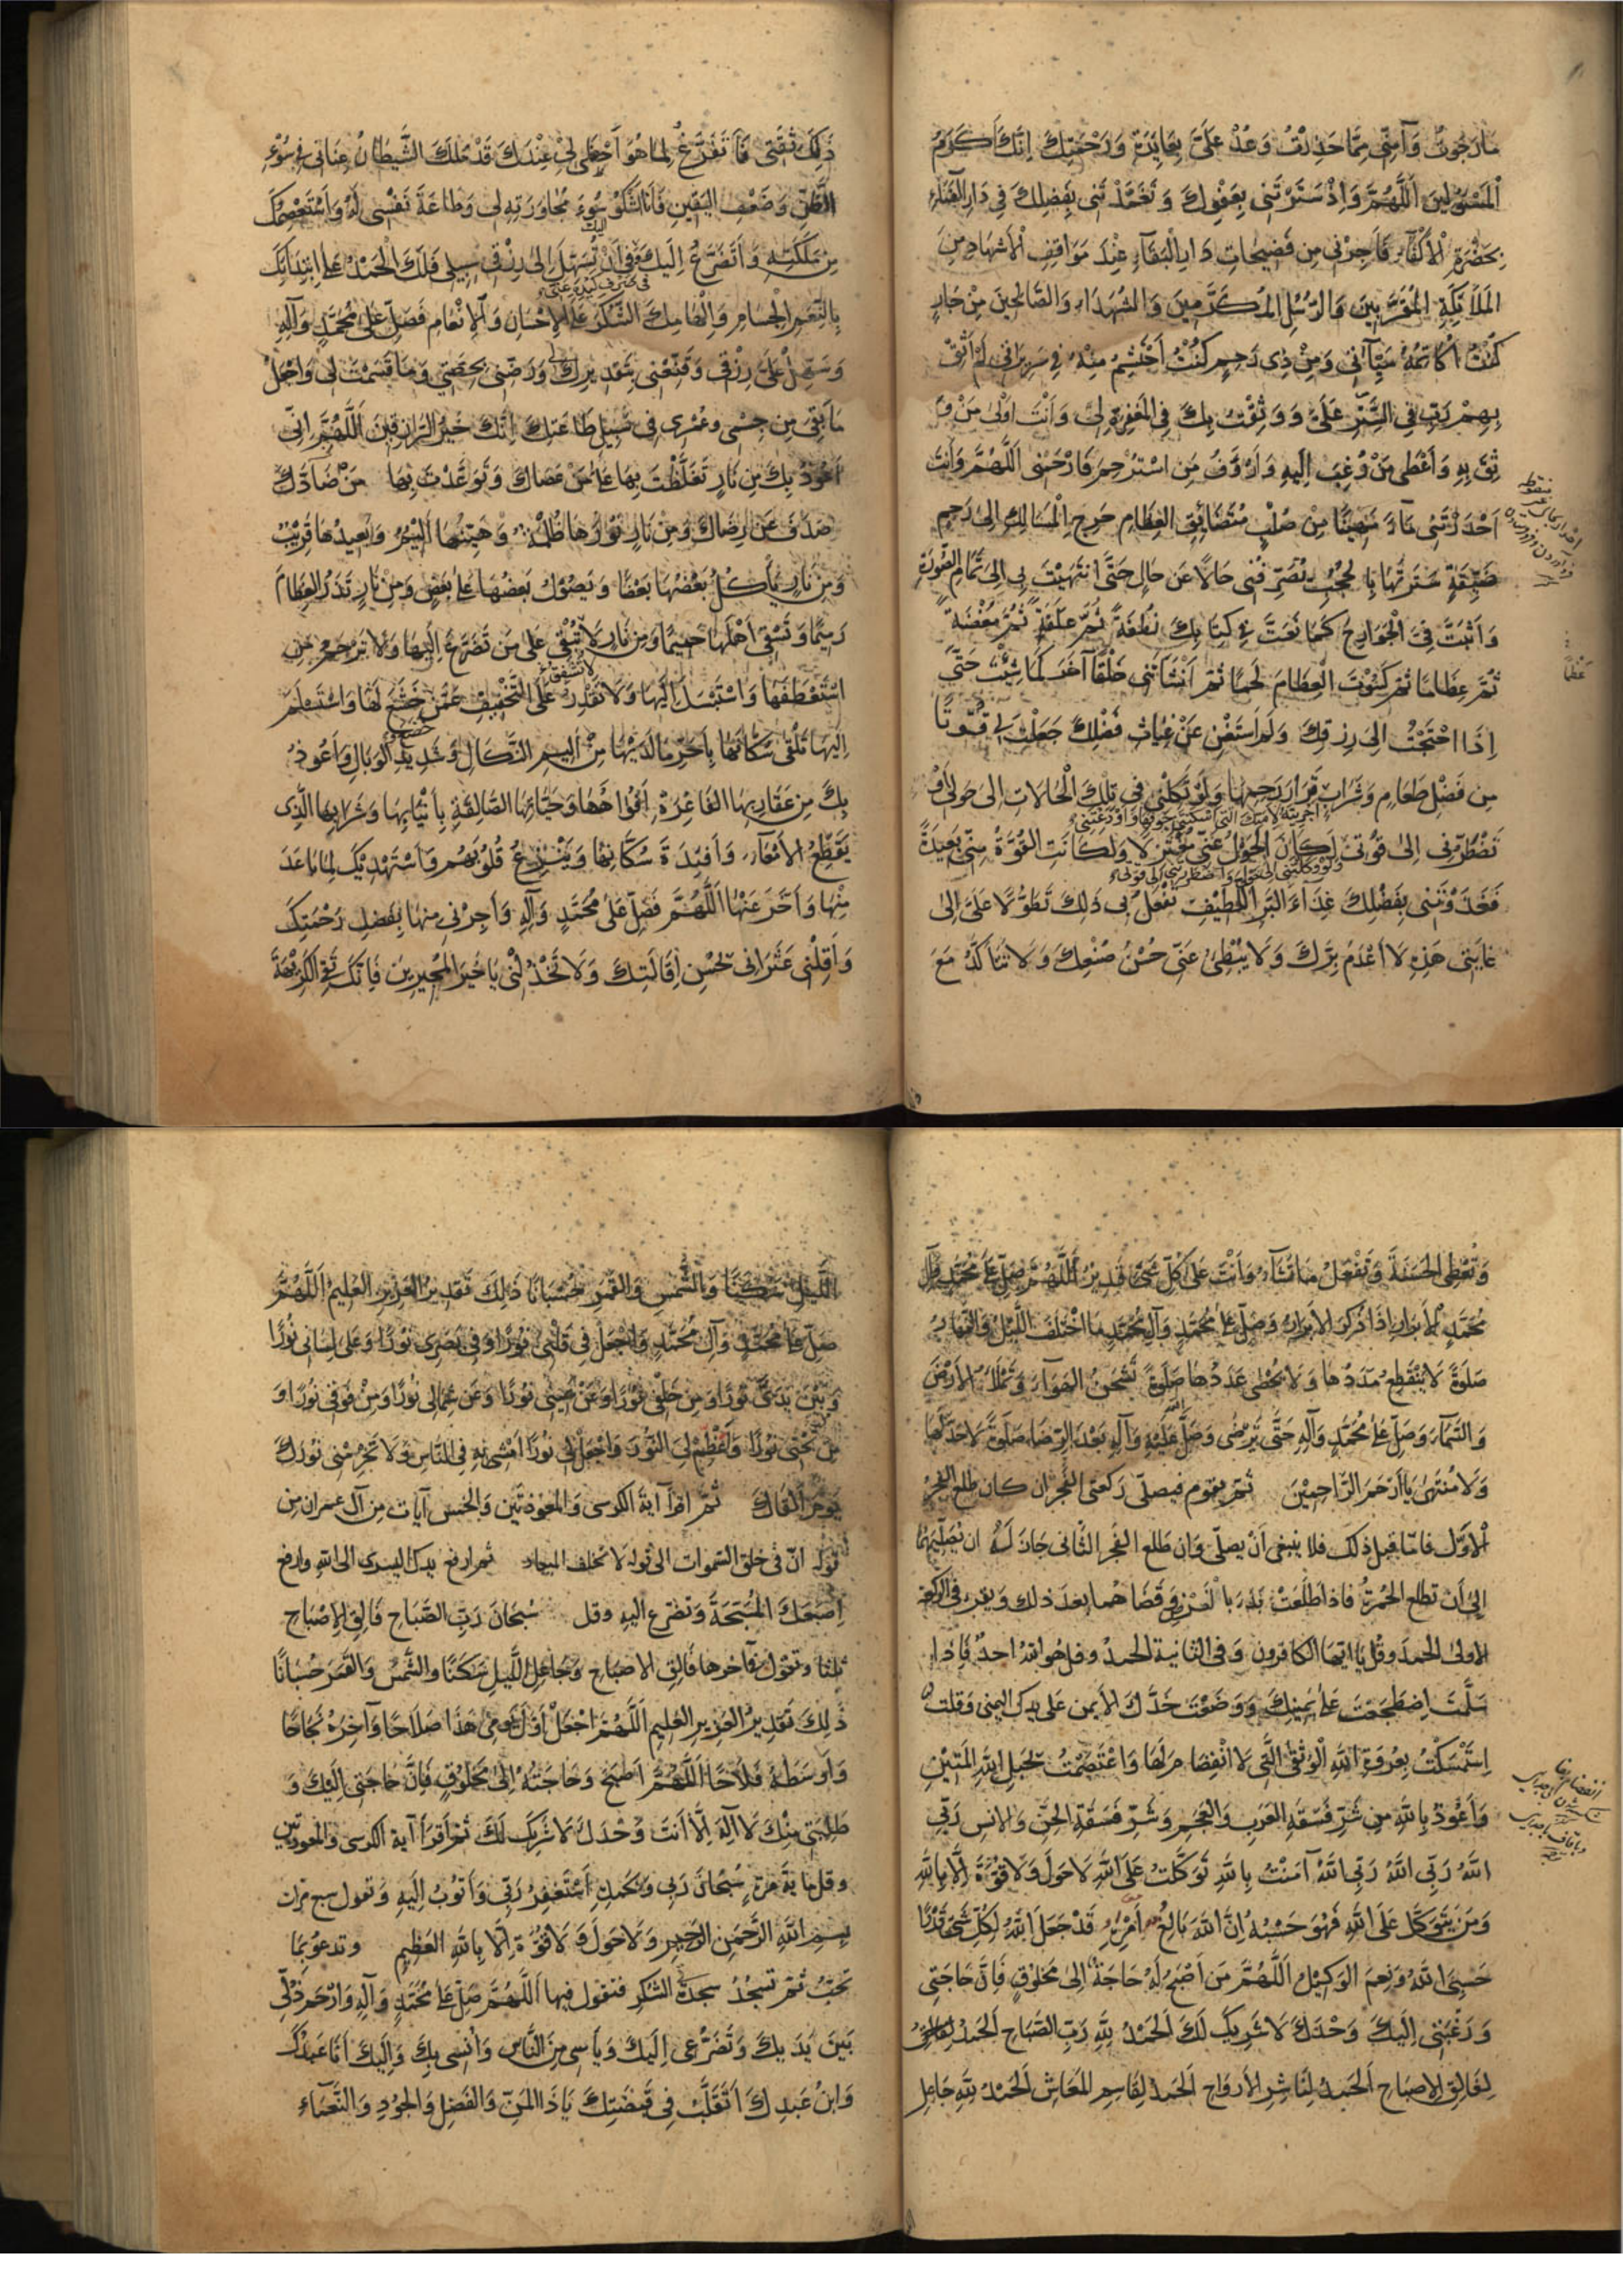 مَا رَجَوْتُ وَآمِنِّي مِمَّا حَذِرْتُ وَعُدْ عَلَيَّ بِعَايِدَةِ رَحْمَتِكَ اِنَّكَ اَكْرَمُ
الْمَسْئُولِينَ اَللّٰهُمَّ وَاِذْ سَتَرْتَنِي بِعَفْوِكَ وَتَغَمَّدْتَنِي بِفَضْلِكَ فِي دَارِ الْفَنَاءِ
بِحَضْرَةِ الْأَكْفَاءِ فَاَجِرْنِي مِن فَضِيحَاتِ دَارِ الْبَقَآءِ عِنْدَ مَوَاقِفِ الْأَشْهَادِ مِنَ
المَلَائِكَةِ المُقَرَّبِينَ وَالرُّسُلِ المُكَرَّمِينَ وَالشُّهَدَاءِ وَالصَّالِحِينَ مِنْ جَارٍ
كُنْتُ اُكَاتِمُهُ سَيِّآتِي وَمِنْ ذِي رَحِمٍ كُنْتُ اَحْتَشِمُ مِنْهُ فِي سَرِيرَاتِي لَمْ اَثِقْ
بِهِمْ رَبِّ فِي السَّتْرِ عَلَيَّ وَوَثِقْتُ بِكَ فِي المَغْفِرَةِ لِي وَاَنْتَ اَوْلَى مَنْ وُ
ثِقَ بِهِ وَاَعْطَى مَنْ رُغِبَ اِلَيهِ وَاَرْوَفُ مَنِ اسْتُرْحِمَ فَارْحَمْنِي اَللّٰهُمَّ وَاَنْتَ
اَحْدَرْتَنِي مَآءً مَهِينًا مِنْ صُلْبٍ مُتَضَائِقِ العِظَامِ حَرِجِ الْمَسَالِكِ اِلَى رَحِمٍ
ضَيِّقَةٍ سَتَرْتَهَا بِالْحُجُبِ تُصَرِّفُنِي حَالًا عَن حَالٍ حَتَّى انْتَهَيْتَ بِي اِلَى تَمَامِ الصُّورَةِ
وَاَثْبَتَّ فِيَّ الْجَوَارِحَ كَمَا نَعَتَّ فِي كِتَابِكَ نُطْفَةً ثُمَّ عَلَقَةً ثُمَّ مُضْغَةً
ثُمَّ عِظَامًا ثُمَّ كَسَوْتَ الْعِظَامَ لَحْمًا ثُمَّ اَنْشَأتَنِي خَلْقًا آخَرَ كَمَا شِئْتَ حَتَّى
اِذَا احْتَجْتُ اِلَى رِزْقِكَ وَلَمْ اَسْتَغْنِ عَنْ غِيَاثِ فَضْلِكَ جَعَلْتَ لِي قُوتًا
مِن فَضْلِ طَعَامٍ وَشَرَابٍ
اَجْرَيْتَهُ لِاَمَتِكَ الَّتِي اَسْكَنْتَنِي جَوْفَهَا وَاَوْدَعْتَنِي
قَرَارَ رَحِمِهَا وَلَوْ تَكِلُنِي فِي تِلْكَ الْحَالَاتِ اِلَى حَوْلِي اَوْ
تَضْطَرُّنِي اِلَى قُوَّتِي لَكَانَ الحَوْلُ عَنِّي مُعْتَزِلًا وَلَكَانَتِ القُوَّةُ مِنِّي بَعِيدَةً
فَغَذَوْتَنِي بِفَضْلِكَ غِذَآءَ البَرِّ اللَّطِيْفِ تَفْعَلُ بِي ذَلِكَ تَطَوُّلًا عَلَيَّ اِلَى
غَايَتِي هَذِهِ لَا اَعْدَمُ بِرَّكَ وَلَا يُبْطِئُ عَنِّي حُسْنُ صُنْعِكَ وَلَا تَتَاَكَّدُ مَعَ
ذَلِكَ ثِقَتِي فَاَتَفَرَّغُ لِمَا هُوَ اَحْظَى لِي عِنْدَكَ قَدْ مَلَكَ الشَّيطَانُ عِنَانِي فِي سُوْءِ
الظَّنِّ وَضَعْفِ اليَقِينِ فَاَنَا اَشْكُو
اِلَيكَ
سُوْءَ مُجَاوَرَتِهِ لِي وَطَاعَةَ نَفْسِي لَهُ وَاَسْتَعْصِمُكَ
مِن مَلَكَتِهِ وَاَتَضَرَّعُ اِلَيكَ
فِي صَرْفِ كَيْدِهِ عَنِّي
وَفِي اَنْ تُسَهِّلَ اِلَى رِزْقِي سَبِيلِي فَلَكَ الْحَمْدُ عَلَى ابْتِدَائِكَ
بِالنِّعَمِ الْجِسَامِ وَاِلْهَامِكَ الشُّكْرَ عَلَى الْاِحْسَانِ وَالْاِنْعَامِ فَصَلِّ عَلَى مُحَمَّدٍ وَآلِهِ
وَسَهِّلْ عَلَيَّ رِزْقِي وَقَنِّعْنِي بِتَقْدِيرِكَ لِي وَرَضِّنِي بِحِصَّتِي وَمَا قَسَمْتَ لِي وَاجْعَلْ
مَا بَقِيَ مِن جِسْمِي وَعُمْرِي فِي سَبِيلِ طَاعَتِكَ اِنَّكَ خَيْرُ الرَّازِقِينَ اَللّٰهُمَّ اِنِّي
اَعُوْذُ بِكَ مِن نَارٍ تَغَلَّظْتَ بِهَا عَلَى مَنْ عَصَاكَ وَتَوَعَّدْتَ بِهَا مَنْ ضَآدَّكَ
صَدَفَ عَن رِضَاكَ وَمِنْ نَارٍ نُورُهَا ظُلْمَةٌ وَهَيِّنُهَا اَلِيْمٌ وَبَعِيدُهَا قَرِيْبٌ
وَمِن نَارٍ يَأكُلُ بَعْضُهَا بَعْضًا وَيَصُوْلُ بَعضُهَا عَلَى بَعْضٍ وَمِنْ نَارٍ تَذَرُ العِظَامَ
رَمِيْمًا وَتَسْقِي اَهْلَهَا حَمِيْمًا وَمِن نَارٍ لَا تُبْقِي عَلَى مَن تَضَرَّعَ اِلَيْهَا وَلَا تَرْحَمُ مَنِ
اسْتَعْطَفَهَا وَاسْتَبْسَلَ اِلَيهَا وَلَا تَقْدِرُ عَلَى التَّخْفِيفِ عَمَّنْ خَشَعَ لَهَا وَاسْتَسْلَمَ
اِلَيهَا تَلْقَى سُكَّانَهَا بِاَحَرِّ مَا لَدَيْهَا مِنْ اَلِيمِ النَّكَالِ وَشَدِيدِ الوَبَالِ وَاَعُوذُ
بِكَ مِن عَقَارِبِهَا الفَاغِرَةِ اَفْوَاهُهَا وَحَيَّاتِهَا الصَّالِقَةِ بِاَنْيَابِهَا وَشَرَابِهَا الَّذِي
يُقَطِّعُ الأَمْعَآءَ وَاَفْئِدَةَ سُكَّانِهَا وَيَنْزِعُ قُلُوبَهُم وَاَسْتَهْدِيكَ لِمَا بَاعَدَ
مِنْهَا وَاَخَّرَ عَنْهَا اَللّٰهُمَّ فَصَلِّ عَلَى مُحَمَّدٍ وَآلِهِ وَاَجِرْنِي مِنهَا بِفَضلِ رَحْمَتِكَ
وَاَقِلْنِي عَثَرَاتِي بِحُسْنِ اِقَالَتِكَ وَلَا تَخْذُلْنِي يَا خَيْرَ المُجِيرِينَ فَاِنَّكَ تَقِي الكَرِيْهَةَ
وَتُعْطِي الحَسَنَةَ وَتَفْعَلُ مَا تَشَآءُ وَاَنْتَ عَلَى كُلِّ شَيءٍ قَدِيرٌ اَللّٰهُمَّ صَلِّ عَلَى مُحَمَّدٍ وَآلِ
مُحَمَّدٍ الْاَبْرَارِ اِذَا ذُكِرَ الاَبْرَارُ وَصَلِّ عَلَى مُحَمَّدٍ وَآلِ مُحَمَّدٍ مَا اخْتَلَفَ اللَّيْلُ وَالنَّهَارُ
صَلوةً لَا يَنْقَطِعُ مَدَدُهَا وَلَا يُحْصَى عَدَدُهَا صَلَوةً تَشْحَنُ الهَوَآءَ وَتَمْلَأُ الأَرْضَ
وَالسَّمَآءَ وَصَلِّ عَلَى مُحَمَّدٍ وَآلِهِ حَتَّى يَرْضَى وَصَلَّى اللهُ عَلَيْهِ وَآلِهِ بَعْدَ الرِّضَا صَلَوةً لَا حَدَّ لَهَا
وَلَا مُنْتَهَى يَا اَرْحَمَ الرَّاحِمِيْنَ ثُمّ يقوم فيصلّى ركعتى الفجر ان كان طلع الفجرُ
الْأوّل فامّا قبل ذلك فلا ينبغى أنْ يصلّى وان طلع الفجر الثّانى جاز لَهُ ان يُصَلِّيَهُمَا
اِلى أنْ تطلع الحُمرةُ فاذا طَلَعَتْ بَدَرَ بالفرض وقضاهما بعد ذلك ويقرء فى الركعة
الاولى الحمدَ وقُل يا ايّها الكافرون وفى الثّانية الحمدُ وقل هو اللهُ احدٌ فَاِذا
سَلَّمْتَ اِضطَجَعْتَ عَلى يَمينِكَ وَوَضَعْتَ خَدَّكَ الأيمن على يدك اليمنى وقلتَ
اِسْتَمْسَكْتُ بِعُرْوَةِ اللهِ الْوُثْقَى الَّتِي لَا انْفِصَامَ لَهَا وَاعْتَصَمْتُ بِحَبلِ اللهِ المَتِيْنِ
وَأعُوْذُ بِاللهِ مِن شَرِّ فَسَقَةِ العَرَبِ وَالعَجَمِ وَشَرِّ فَسَقَةِ الجِنِّ وَالاِنسِ رَبِّيَ
اللهُ رَبِّيَ اللهُ رَبِّيَ اللهُ آمَنْتُ بِاللهِ تَوَكَّلْتُ عَلَى اللهِ لَا حَولَ وَلَا قُوَّةَ اِلَّا بِاللهِ
وَمَن يَتَوَكَّلْ عَلَى اللهِ فَهُوَ حَسْبُهُ اِنَّ اللهَ بَالِغُ اَمْرِهِ قَدْ جَعَلَ اللهُ لِكُلِّ شَيءٍ قَدْرًا
حَسْبِيَ اللهُ وَنِعمَ الوَكِيْلُ اَللّٰهُمَّ مَن اَصْبَحَ لَهُ حَاجَةٌ اِلَى مَخلُوْقٍ فَاِنَّ حَاجَتِي
وَرَغْبَتِي اِلَيكَ وَحْدَكَ لَا شَرِيكَ لَكَ اَلحَمْدُ لِلّٰهِ رَبِّ الصَّبَاحِ اَلحَمْدُ
لِفَالِقِ الإِصبَاحِ اَلحَمدُ لِنَاشِرِ الأَروَاحِ اَلحَمدُ لِقَاسِمِ المَعَاشِ اَلحَمْدُ لِلّٰهِ جَاعِلِ
اللَّيْلِ سَكَنًا وَالشَّمسِ وَالقَمَرِ حُسْبَانًا ذَلِكَ تَقدِيرُ العَزِيْزِ العَلِيمِ اَللّٰهُمَّ
صَلِّ عَلَى مُحَمَّدٍ وَآلِ مُحَمَّدٍ وَاجْعَلْ فِي قَلْبِي نُوْرًا وَفِي بَصَرِي نُورًا وَعَلَى لِسَانِي نُورًا
وَبَيْنَ يَدَيَّ نُورًا وَمِن خَلْفِي نُورًا وَعَنْ يَمِينِي نُورًا وَعَن شِمَالِي نُورًا وَمِنْ فَوقِي نُورًا وَ
مِن تَحْتِي نُورًا وَاَعْظِمْ لِيَ النُّورَ وَاجْعَلْ لِي نُورًا اَمْشِي بِهِ فِي النَّاسِ وَلَا تَحْرِمْنِي نُورَكَ
يَوْمَ اَلْقَاكَ ثُمّ اقرأ آيةَ الكرسى والمعوّذتين والخمس آيات من آل عمران من
قوله انّ فى خلق السّموات الى قوله لا تخلف الميعاد ثم ارفع يدك اليسرى الى الله وارفع
اِصبَعَكَ المُسَبِّحَةَ وتضرّع اليهِ وقل سُبْحَانَ رَبِّ الصَّبَاحِ فَالِقِ الإِصْبَاحِ
ثلثا وتقول فى آخرها فَالِقِ الاِصبَاحِ وَجَاعِلِ اللَّيلِ سَكَنًا وَالشَّمسِ وَالقَمَرِ حُسْبَانًا
ذَلِكَ تَقدِيرُ العَزِيزِ العَلِيمِ اَللّٰهُمَّ اجْعَلْ اَوَّلَ يَومِي هَذَا صَلَاحًا وَآخِرَهُ نَجَاحًا
وَاَوسَطَهُ فَلَاحًا اَللّٰهُمَّ اَصْبَحَ وَحَاجَتُهُ اِلَى مَخلُوْقٍ فَاِنَّ حَاجَتِي اِلَيْكَ وَ
طَلِبَتِي مِنْكَ لَا اِلَهَ اِلَّا اَنْتَ وَحْدَكَ لَا شَرِيكَ لَكَ ثم اقرأ آية الكرسى والمعوذتين
وقل مائة مَرّةٍ سُبْحَانَ رَبِّي وَبِحَمدِهِ اَسْتَغفِرُ رَبِّي وَاَتُوبُ اِلَيهِ وتقول سبع مرّات
بِسمِ اللهِ الرَّحْمَنِ الرَّحِيمِ وَلَا حَولَ وَلَا قُوَّةَ اِلَّا بِاللهِ العَظِيمِ وتدعو بما
تحبّ ثمّ تسجُدُ سجدةَ الشكر فتقول فيها اَللّٰهُمَّ صَلِّ عَلَى مُحَمَّدٍ وَآلِهِ وَارْحَم ذُلِّي
بَينَ يَدَيكَ وَتَضَرُّعِي اِلَيكَ وَيَأسِي مِنَ النَّاسِ وَاُنسِي بِكَ وَاِلَيكَ اَنَا عَبدُكَ
وَابْنُ عَبدِكَ اَتَقَلَّبُ فِي قَبضَتِكَ يَا ذَا المَنِّ وَالفَضلِ وَالجُودِ وَالنَّعمَاءِ